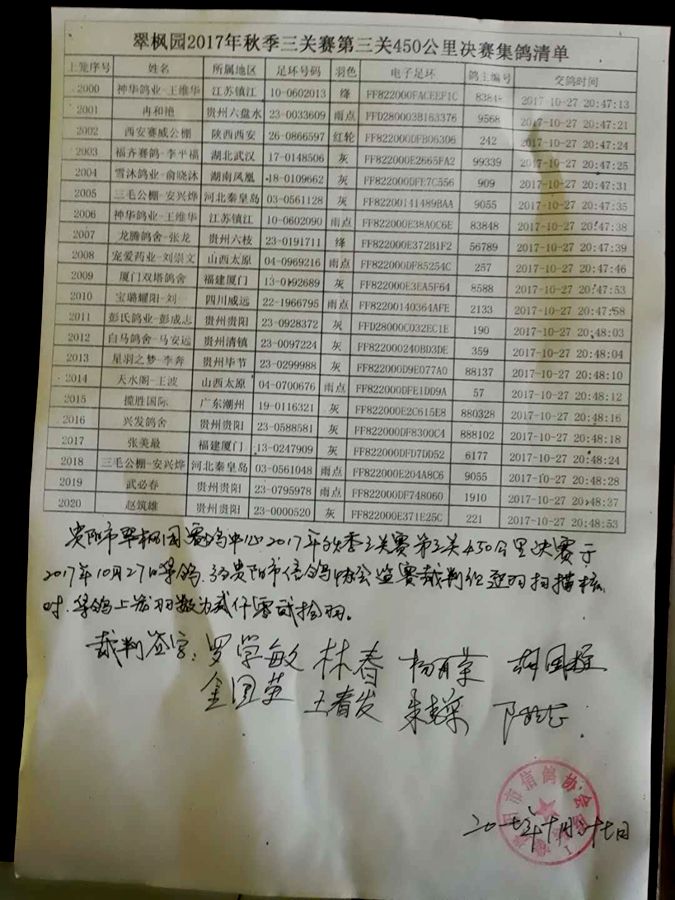 翠枫园2017年秋季三关赛第三关450公里决赛集鸽清单
上笼序号 姓名 所属地区 足环号码 羽色 电子足环 鸽主编号 交鸽时间
2000 神华鸽业-王维华 江苏镇江 10-0602013 绛 FF822000FACEEF1C 83848 2017-10-27 20:47:13
2001 冉和艳 贵州六盘水 23-0033609 雨点 FFD280003B163376 9568 2017-10-27 20:47:21
2002 西安赛威公棚 陕西西安 26-0866597 红轮 FF822000DFB06306 242 2017-10-27 20:47:24
2003 福齐赛鸽-李平福 湖北武汉 17-0148506 灰 FF822000E2665FA2 99339 2017-10-27 20:47:25
2004 雪沐鸽业-俞晓沐 湖南凤凰 18-0109662 灰 FF822000DFE7C556 909 2017-10-27 20:47:31
2005 三毛公棚-安兴烨 河北秦皇岛 03-0561128 灰 FF82200141489BAA 9055 2017-10-27 20:47:35
2006 神华鸽业-王维华 江苏镇江 10-0602090 雨点 FF822000E38A0C6E 83848 2017-10-27 20:47:38
2007 龙腾鸽舍-张龙 贵州六枝 23-0191711 绛 FF822000E372B1F2 56789 2017-10-27 20:47:39
2008 宠爱药业-刘崇文 山西太原 04-0969216 雨点 FF822000DF85254C 257 2017-10-27 20:47:46
2009 厦门双塔鸽舍 福建厦门 13-0192689 灰 FF822000E3EA5F64 8588 2017-10-27 20:47:53
2010 宝璐耀阳-刘一 四川威远 22-1966795 雨点 FF82200140364AFE 2133 2017-10-27 20:47:58
2011 彭氏鸽业-彭成志 贵州贵阳 23-0928372 灰 FFD28000C032EC1E 190 2017-10-27 20:48:03
2012 白马鸽舍-马安远 贵州清镇 23-0097224 灰 FF822000240BD3DE 359 2017-10-27 20:48:04
2013 星羽之梦-李奔 贵州毕节 23-0299988 灰 FF822000D9E077A0 88137 2017-10-27 20:48:10
2014 天水阁-王波 山西太原 04-0700676 雨点 FF822000DFE1DD9A 57 2017-10-27 20:48:12
2015 揽胜国际 广东潮州 19-0116321 灰 FF822000E2C615E8 880328 2017-10-27 20:48:16
2016 兴发鸽舍 贵州贵阳 23-0588581 灰 FF822000DF8300C4 888102 2017-10-27 20:48:18
2017 张美最 福建厦门 13-0247909 灰 FF822000DFD7DD52 6177 2017-10-27 20:48:24
2018 三毛公棚-安兴烨 河北秦皇岛 03-0561048 雨点 FF822000E204A8C6 9055 2017-10-27 20:48:28
2019 武必春 贵州贵阳 23-0795978 雨点 FF822000DF748060 1910 2017-10-27 20:48:50
2020 赵筑雄 贵州贵阳 23-0000520 灰 FF822000E371E25C 221 2017-10-27 20:48:53
贵阳市翠枫园赛鸽中心2017年秋季三关赛第三关450公里决赛于
2017年10月27日集鸽,经贵阳市信鸽协会监赛裁判组逐羽扫描核
对,集鸽上笼羽数为贰仟零贰拾羽。
裁判签字: 罗学敏 林春 杨育荣 胡国程
金国英 王春发
贵阳市信鸽协会
二〇一七年十月廿七日